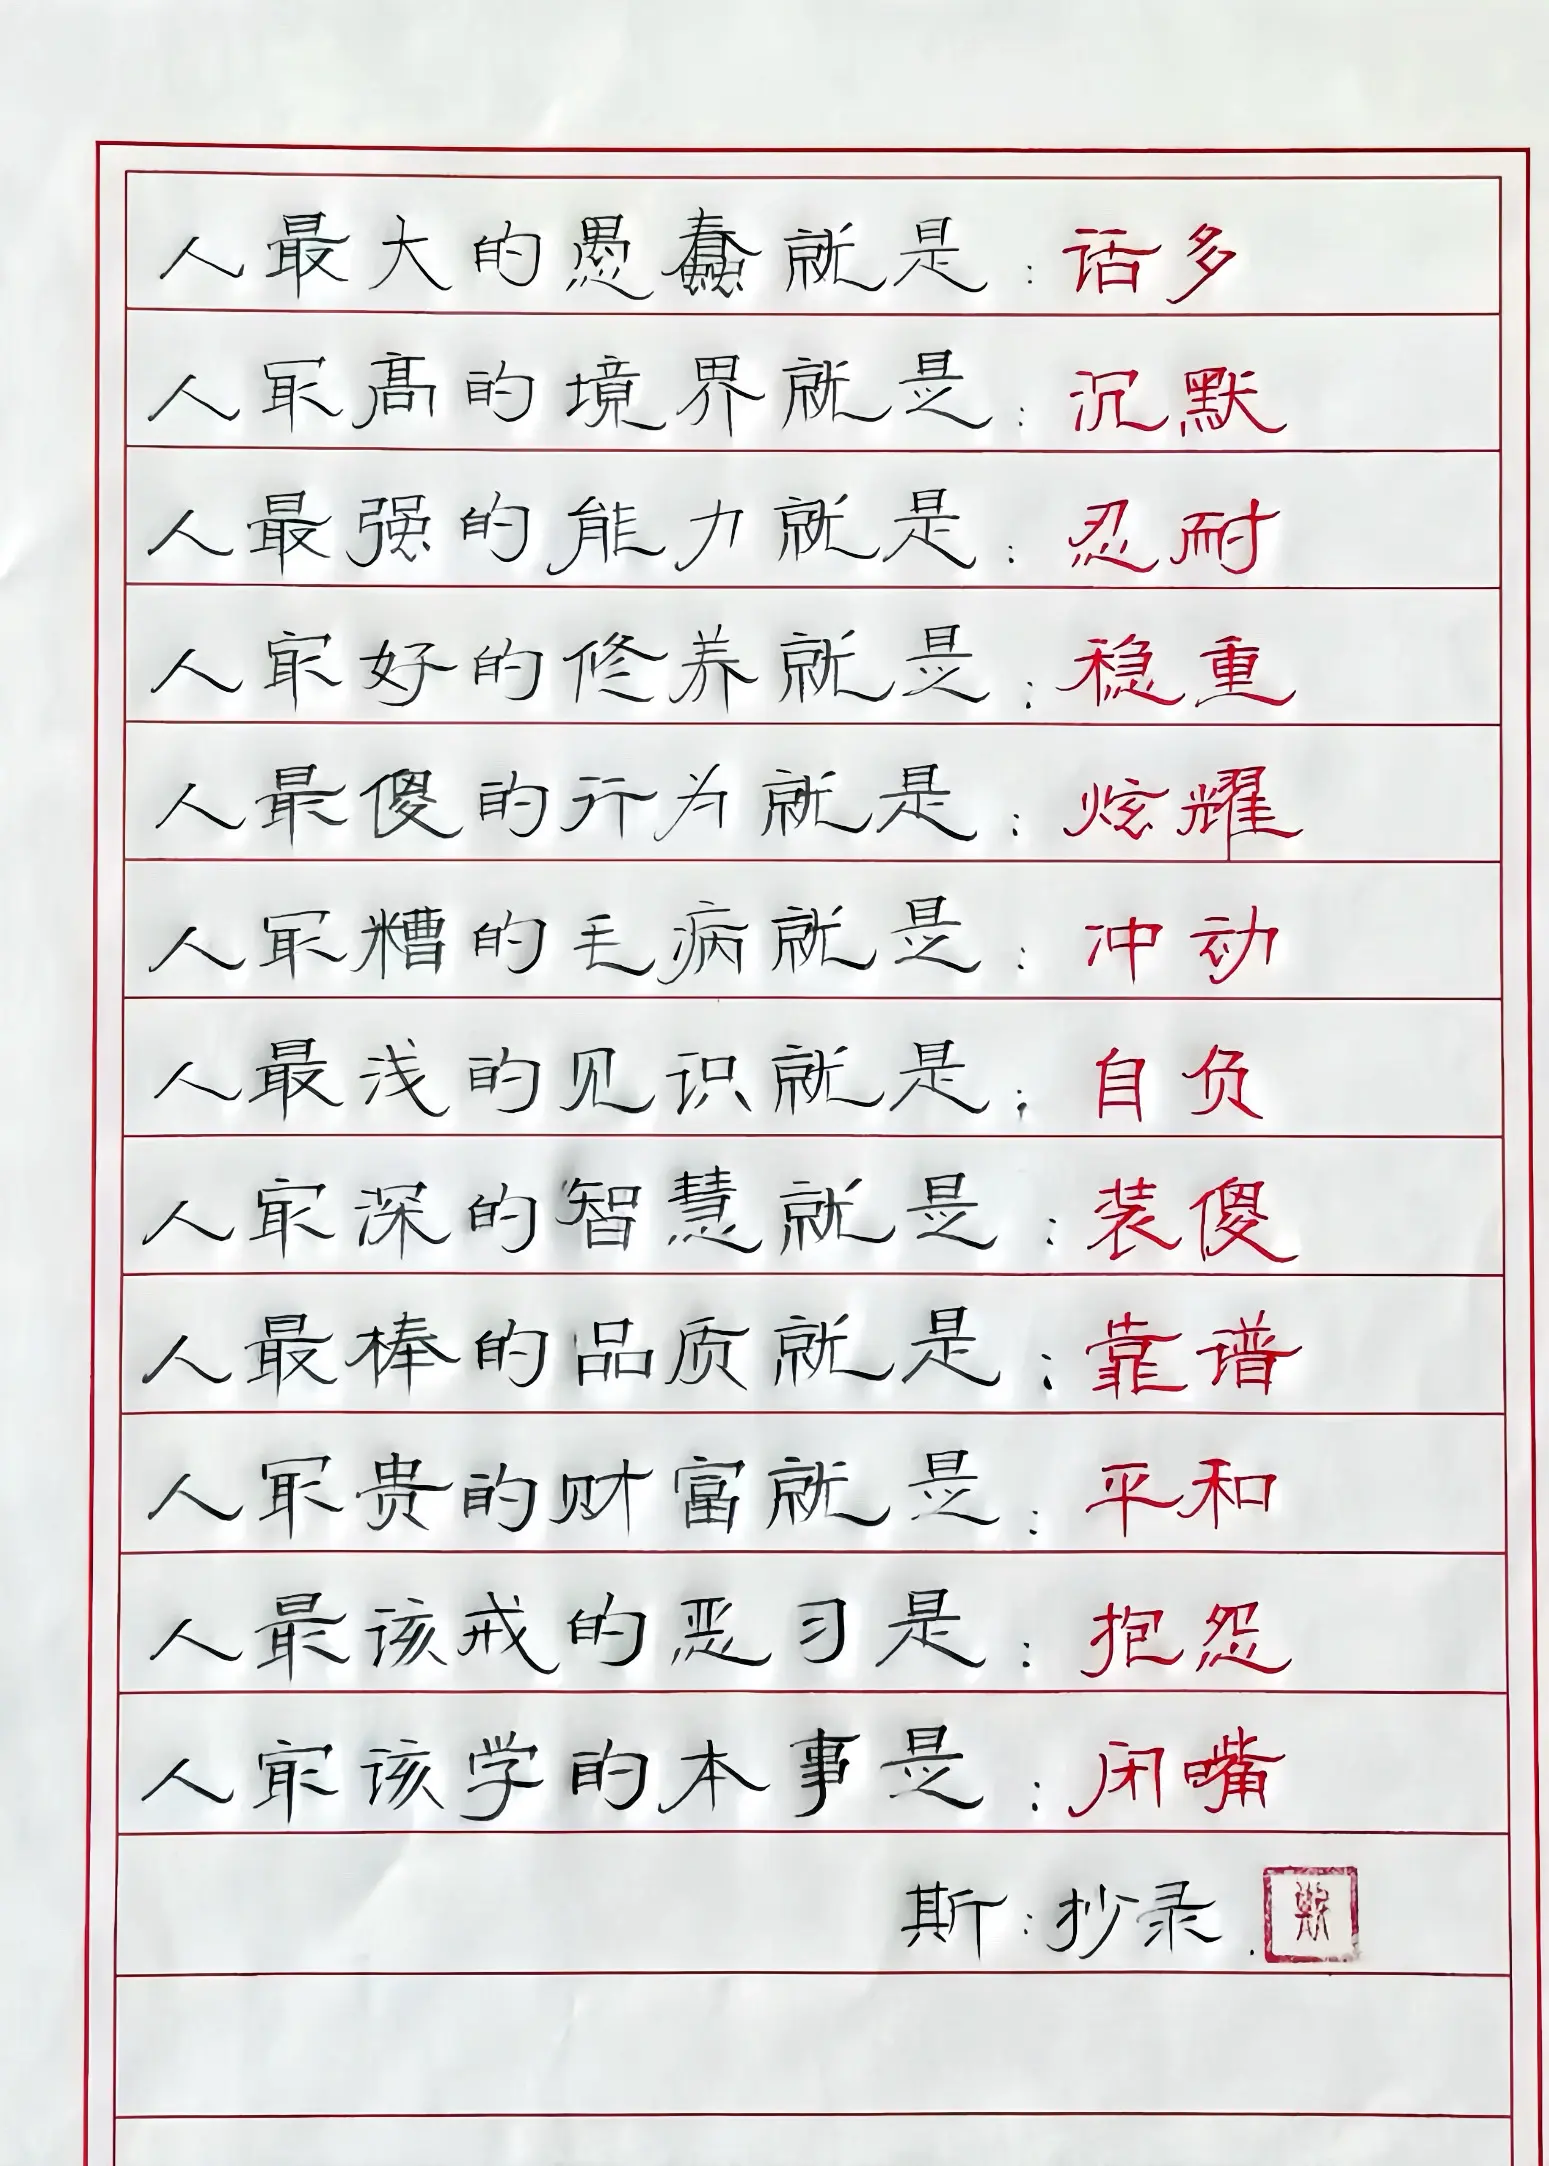 人最大的愚蠢就是：话多
人最高的境界就是：沉默
人最强的能力就是：忍耐
人最好的修养就是：稳重
人最傻的行为就是：炫耀
人最糟的毛病就是：冲动
人最浅的见识就是：自负
人最深的智慧就是：装傻
人最棒的品质就是：靠谱
人最贵的财富就是：平和
人最该戒的恶习是：抱怨
人最该学的本事是：闭嘴
斯：抄录.